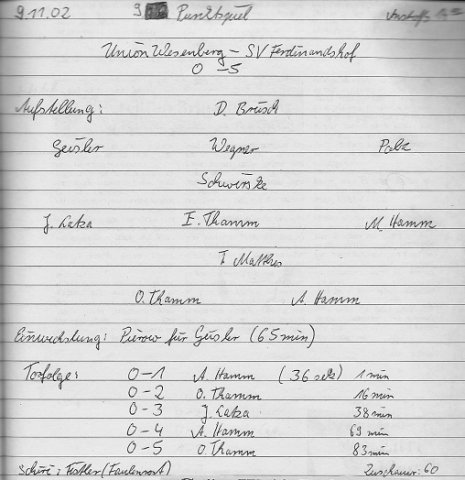 9.11.02 9. Punktspiel
Union Wesenberg - SV Ferdinandshof
0 - 5
Aufstellung: D. Brüsch
Geisler Wegner
Schwirske
J. Latza E. Thamm M. Hamm
T. Matthes
O. Thamm A. Hamm
Einwechslung: Pierow für Geisler (65 min)
Torfolge: 0-1 A. Hamm (36 sek) 1 min
0-2 O. Thamm 16 min
0-3 J. Latza 38 min
0-4 A. Hamm 69 min
0-5 O. Thamm 83 min
Schiri: (Faulenrost) Zuschauer: 60